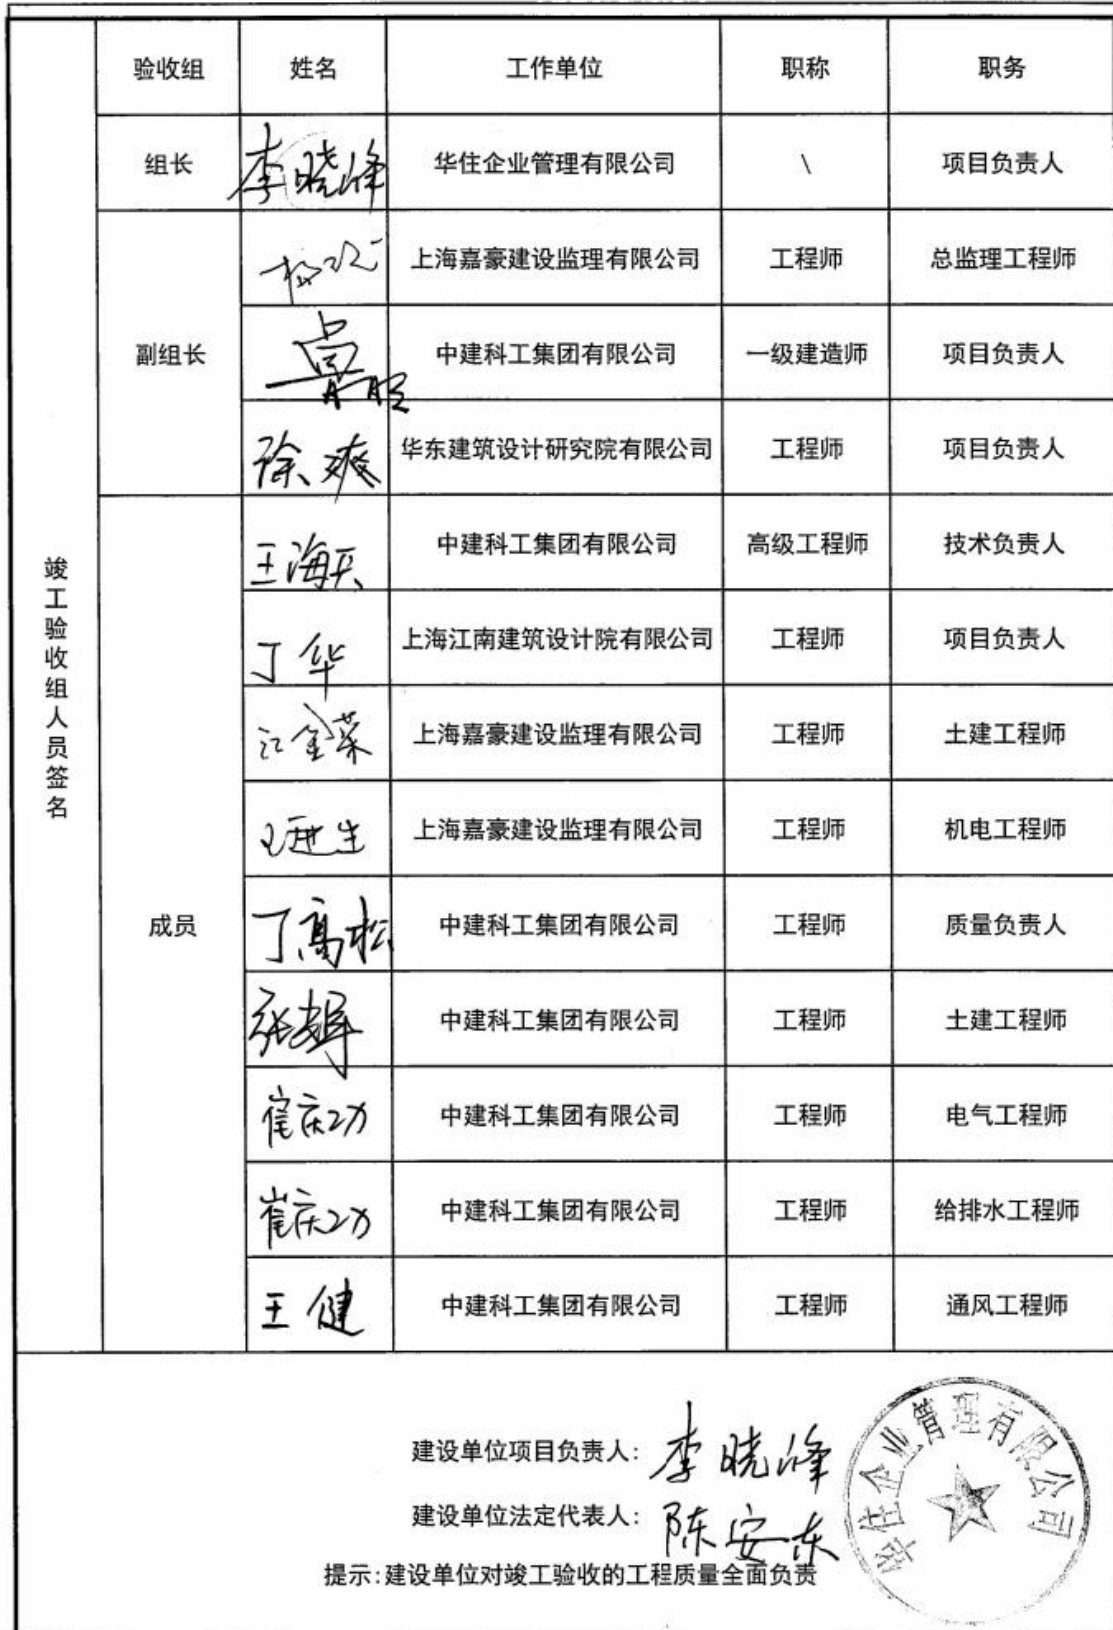 验收组 姓名 工作单位 职称 职务
竣工验收组人员签名
组长 李晓峰 华住企业管理有限公司 \ 项目负责人
副组长
上海嘉豪建设监理有限公司 工程师 总监理工程师
中建科工集团有限公司 一级建造师 项目负责人
徐爽 华东建筑设计研究院有限公司 工程师 项目负责人
成员
王海兵 中建科工集团有限公司 高级工程师 技术负责人
丁华 上海江南建筑设计院有限公司 工程师 项目负责人
江金荣 上海嘉豪建设监理有限公司 工程师 土建工程师
上海嘉豪建设监理有限公司 工程师 机电工程师
丁高松 中建科工集团有限公司 工程师 质量负责人
中建科工集团有限公司 工程师 土建工程师
崔庆功 中建科工集团有限公司 工程师 电气工程师
崔庆功 中建科工集团有限公司 工程师 给排水工程师
王健 中建科工集团有限公司 工程师 通风工程师
建设单位项目负责人: 李晓峰
建设单位法定代表人: 陈安东
提示:建设单位对竣工验收的工程质量全面负责
华住企业管理有限公司